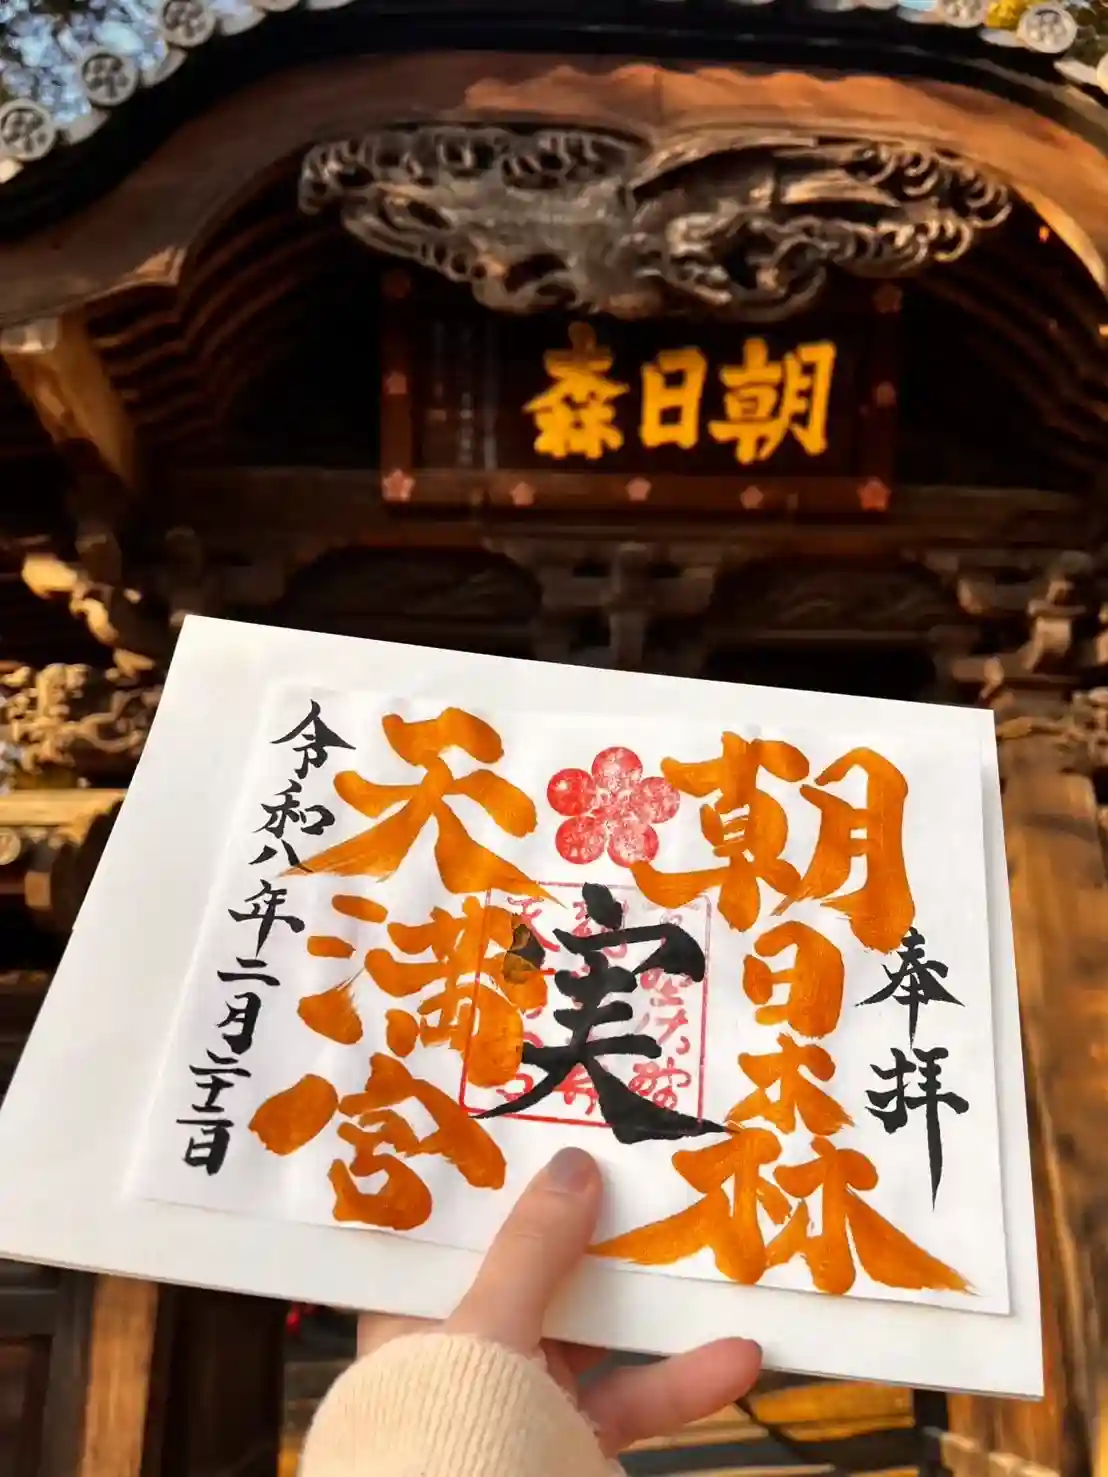 朝日森
奉拝
朝日森
実
天満宮
令和八年二月二十二日